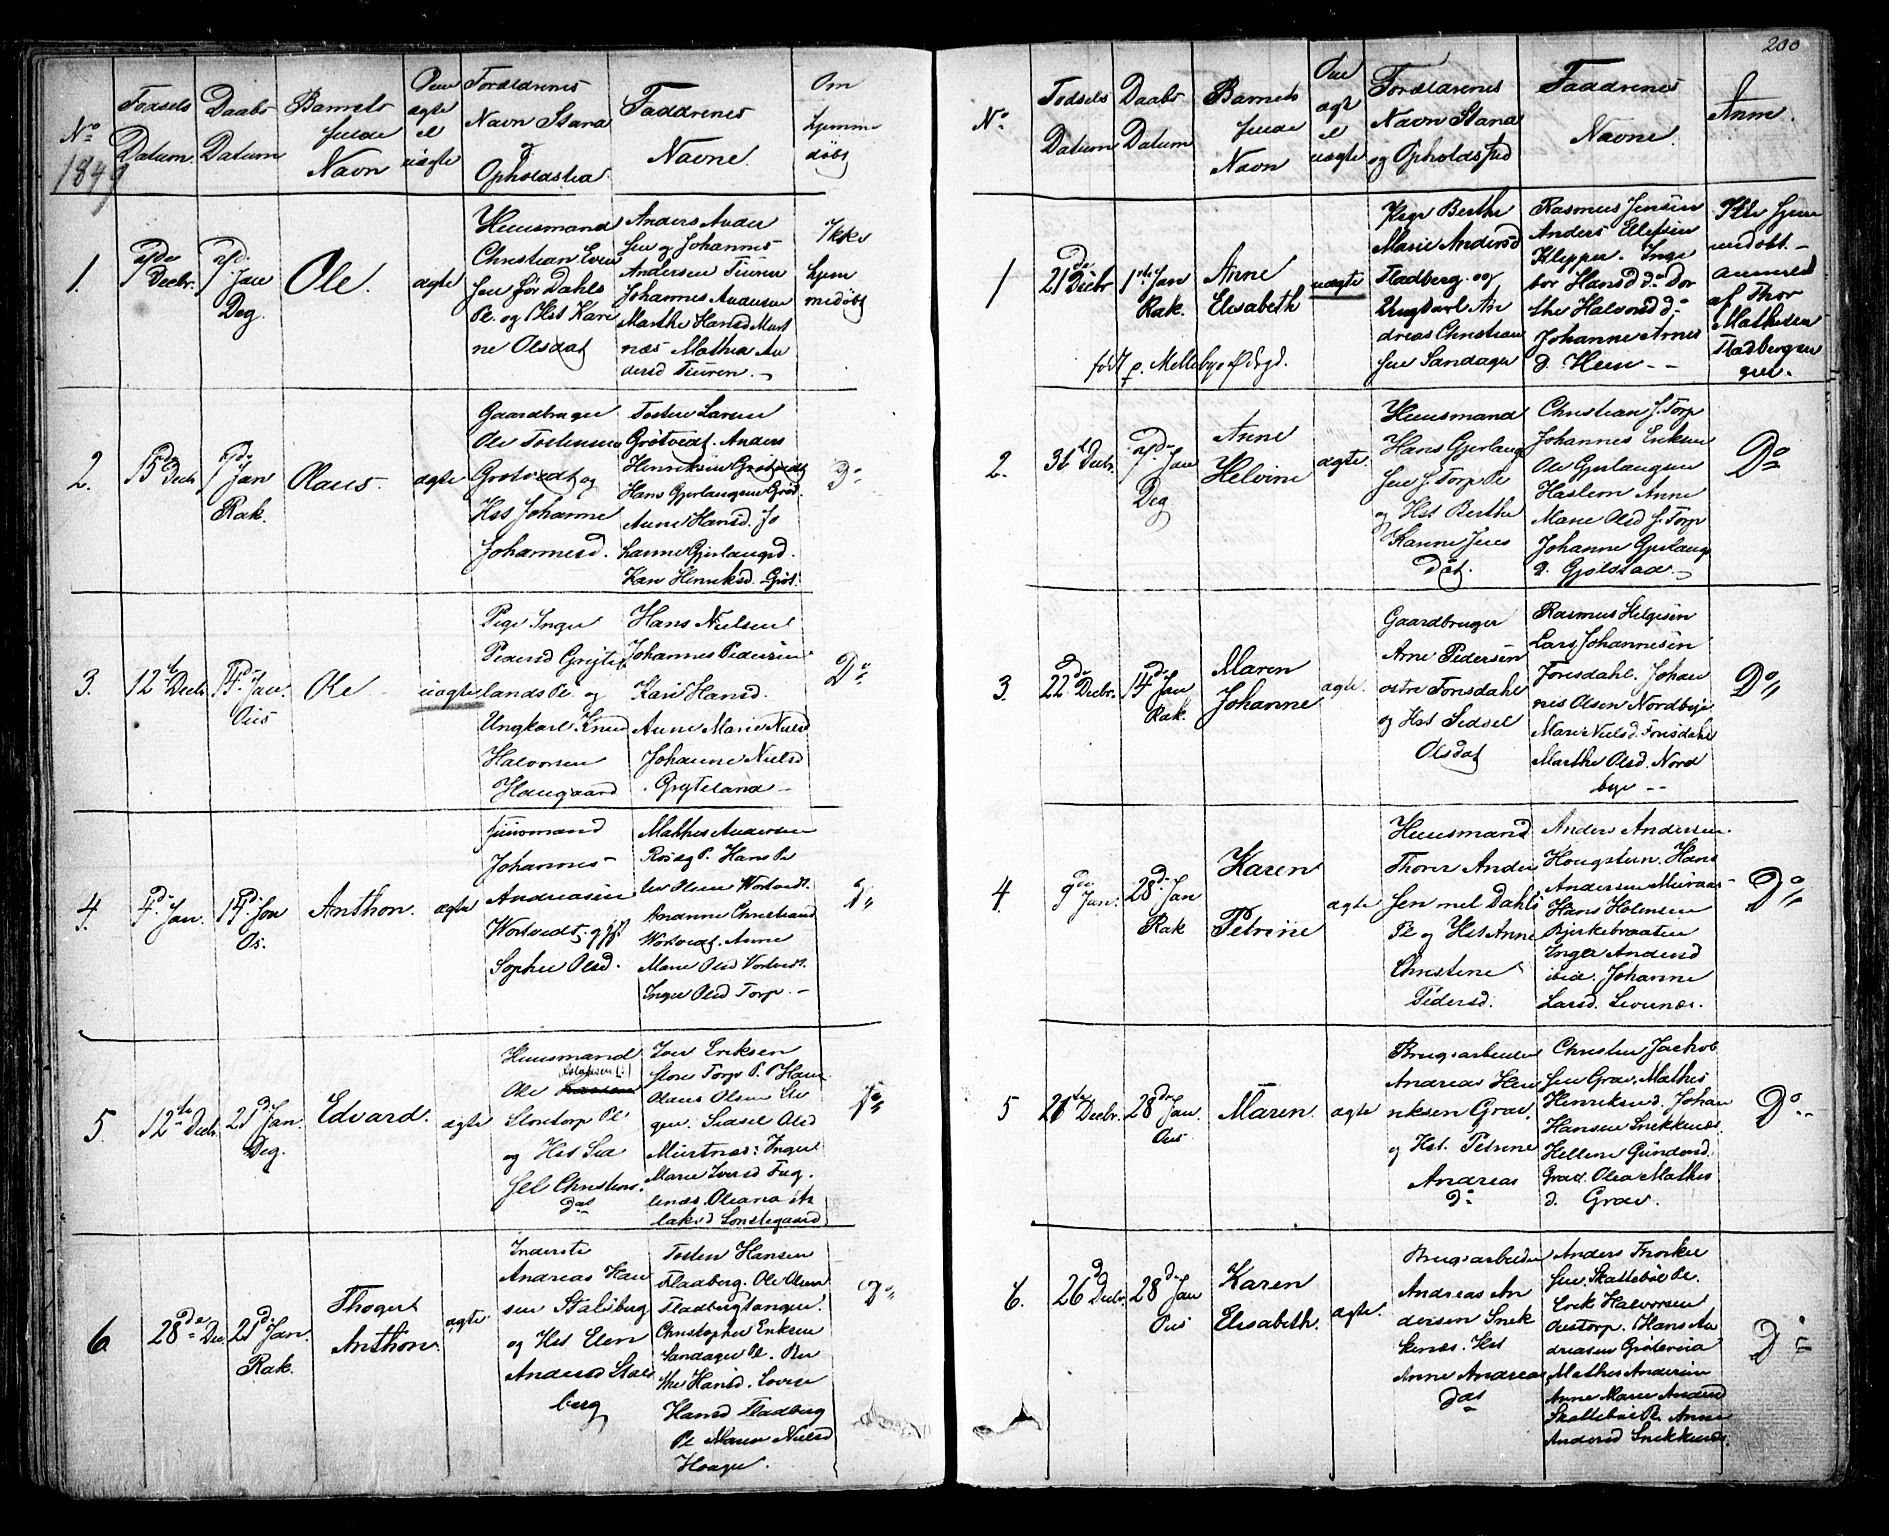 200
No
1849
Fødsels
Datum
Daabs
Datum
Barnets
fulde
Navn
Om
ægte
el
uægte
Forældrenes
Navn Stand
og
Opholdsted
Faddrenes
Navne.
Om
hjemme
døbt
1.
Decbr.
7d Jan
Deg.
Ole.
ægte
Huusmand
Christian Even
sen før Dahls
Pl. og Hst Kari
ne Olsdat
Anders Ander
sen og Johannes
Andersen Tuuren
Johannes Andersen
Marthe Hansd Murt
næs Mathea An
dersd Tuuren.
Ikke
hjem
medøbt
2.
15de Decbr
7de Jan
Rak.
Olaus.
ægte
Gaardbruger
Ole Tostensen
Grotvedt og
Hst Johanne
Johannesd.
Tosten Larsen
Grøtvedt. Anders
Henriksen Grøtvedt
Hans Gjerlaugsen Grøt
Anne Hansd. Jo
hanne Gjerlaugsd.
Kari Henriksd. Grøt.
Do
3.
12te Decbr.
14d Jan.
Ous
Ole
uægte
Pige Inger
Pedersd Grytes
lands Pl. og
Ungkarl Knud
Halvorsen
Haugaard
Hans Nielsen
Johannes Pedersen
Kari Hansd.
Anne Marie Nielsd
Johanne Nielsd
Gryteland
Do
4.
4d Jan.
14d Jan
Os.
Anthon.
ægte
Huusmand
Johannes
Andreasen
Wortvedt. og Hst
Sophie Olsd.
Mathes Andersen
Hans Pe
ter Olsen Wortvedt.
Wortvedt. Anne
Marie Olsd Wortvedt.
Inger Olsd Torp.
Do
5.
12te Decbr.
21d Jan.
Deg.
Edvard.
ægte
Huusmand
Ole
Storetorp Pl
og Hst Sid
sel Christians
dat
Iver Eriksen
store Torp P. Hans
Olaus Olsen
gen. Sidsel Olsd
Murtnæs: Inger
Marie Iversd Fug
lenæs. Oleana As
laksd Sonstegaard
Do
6.
28de Dec.
21d Jan.
Rak.
Thogert
Anthon.
ægte
Inderste
Andreas Han
sen Stalsberg
og Hst Elen
Andersd Stals
berg
Tosten Hansen
Fladberg. Ole Olsen
Fladbergtangen.
Christopher Eriksen
Sandager Pl. Ber
the Hansd. Lovise
Hansd Fladberg
Pl Maren Nielsd
Haager.
Do
No
Fødsels
Datum
Daabs
Datum
Barnets
fulde
Navn
Om
ægte
el
uægte
Forældrenes
Navn Stand
og Opholdssted
Faddrenes
Navne.
Anm.
1
21de Decbr
1ste Jan
Rak.
Anne
Elisabeth
uægte
Pige Berthe
Marie Andersd
Fladberg. og
Ungkarl An
dreas Christian
sen Sandager
Rasmus Jensen
Anders Ellefsen
Klippen. Inge
bor Hansd do Dor
the Halvorsd do
Johanne Arnes
d. Huu
Ikke hjem
medøbt
anmeldt
af Thor
Mathisen
Fladbergen
gen.
født p. Mellebye Ødegd.
2.
31t Decbr.
7de Jan
Deg
Anne
Helvine
ægte.
Huusmand
Hans Gjerlaug
sen s. Torp Pl
og Hst Berthe
Karine Jens
dat.
Christian s. Torp
Johannes Eriksen
Ole Gjerlaugsen
Haslem Anne
Marie Olsd s. Torp
Johanne Gjerlaugs
d. Gjolstad.
Do
3.
22de Decbr.
14d Jan
Rak.
Maren
Johanne
ægte.
Gaardbruger
Arne Pedersen
østre Tonsdahl
og Hst Sidsel
Olsdat
Rasmus Helgesen
Lars Johannesen
Tonsdahl. Johan
nes Olsen Nordbye
Marie Nielsd. Tonsdahl
Marthe Olsd. Nord
bye
Do
4.
9de Jan.
28d Jan
Rak
Karen
Petrine
ægte
Huusmand
Thorer Ander
sen mel Dahls
Pl og Hst Anne
Christine
Pedersd.
Anders Andersen
Hougsteen. Hans
Andersen Muraas
Hans Holmsen
Bjerkebraaten
Inger Andersd
ibid. Johanne
Larsd. Levernæs.
Do
5
21te Decbr.
28de Jan.
Ous
Maren.
ægte
Brugsarbeider
Andreas Hen
riksen Grav.
og Hst. Petrine
Andreas
do
Christen Jachob
sen Grav. Mathis
Henriksend. Johan
Hansen Snekkenæs.
Hellene Gundersd.
Grav. Olea Mathis
d. Grav.
Do
6.
26d Decbr.
28de Jan
Ous
Karen
Elisabeth.
ægte.
Brugsarbeider
Andreas An
dersen Snek
kenæs. Hst
Anne Andreas
dat
Anders Thorke
sen. Skattebøl Pl.
Erik Halvorsen
Oustorp. Hans An
dreasen Grøtevia
Mathes Andersen
Anne Marie Andersd
Skattebøl Pl. Anne
Andersd Snekkenæs.
Do